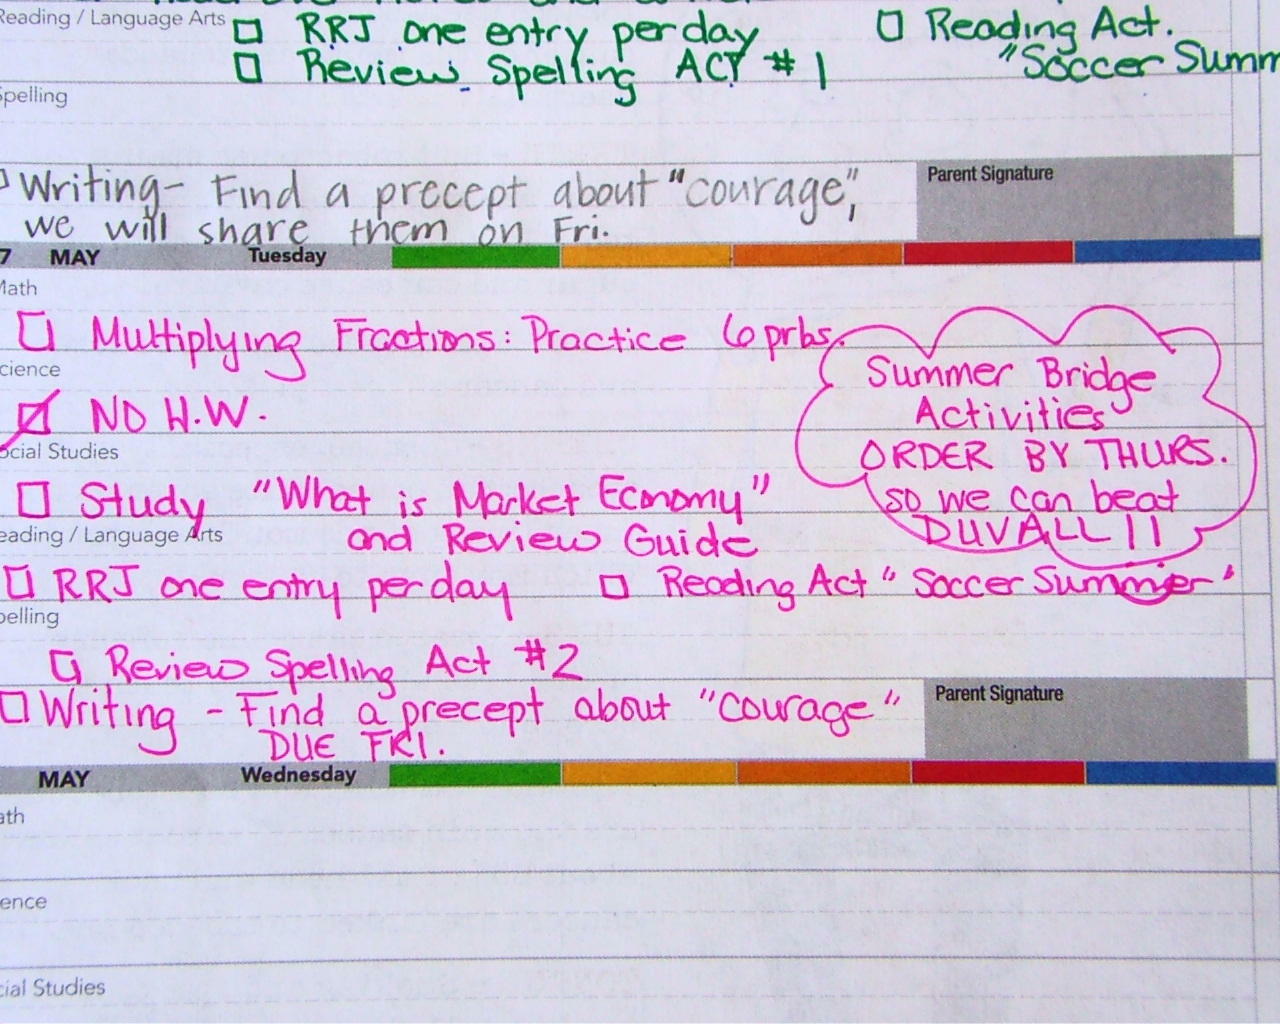 Reading / Language Arts
RRJ one entry per day
Reading Act.
Review Spelling ACT #1
"Soccer Summ
Spelling
Writing- Find a precept about "courage",
we will share them on Fri.
Parent Signature
7 MAY Tuesday
Math
Multiplying Fractions: Practice 6 prbs.
cience
NO H.W.
ocial Studies
Summer Bridge
Activities
ORDER BY THURS.
so we can beat
DUVALL!!
Study "What is Market Economy"
and Review Guide
eading / Language Arts
RRJ one entry per day
Reading Act "Soccer Summer"
pelling
Review Spelling Act #2
Writing - Find a precept about "courage"
DUE FRI.
Parent Signature
MAY Wednesday
ath
ence
cial Studies